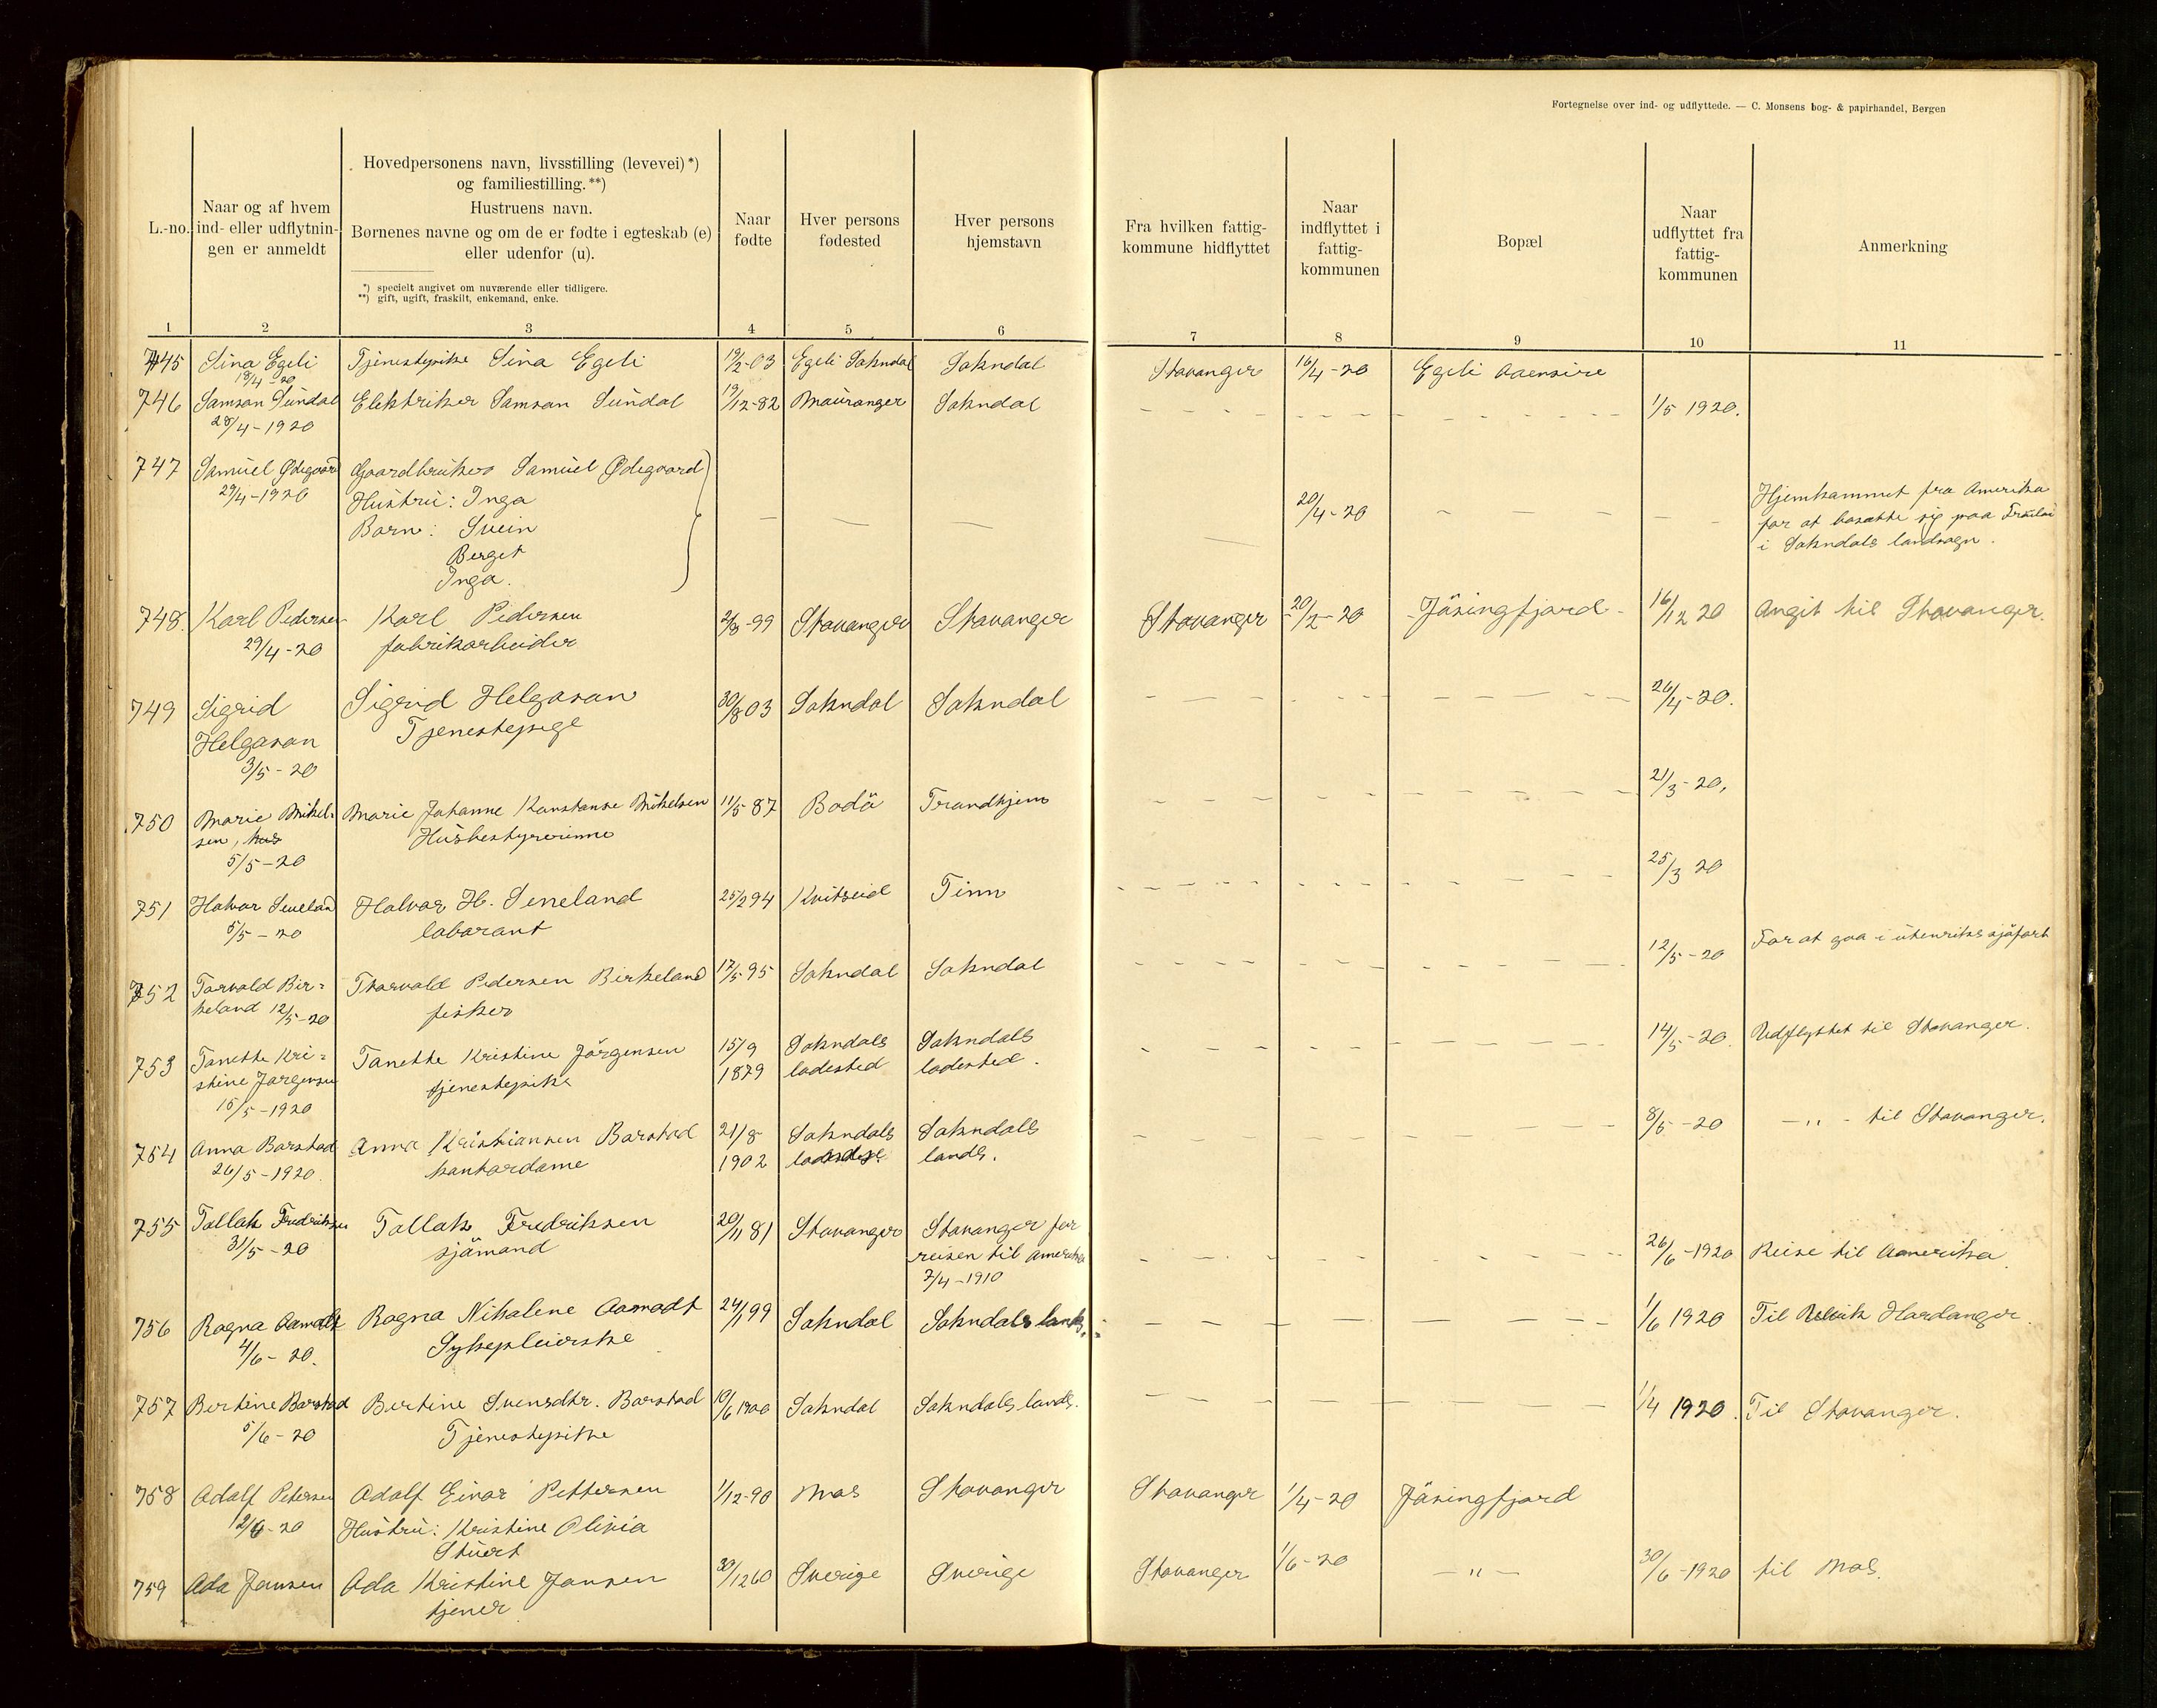 Fortegnelse over ind- og udflyttede. — C. Monsens bog- & papirhandel, Bergen
L.-no.
Naar og af hvem
ind- eller udflytnin-
gen er anmeldt
Hovedpersonens navn, livsstilling (levevei)*)
og familiestilling.**)
Hustruens navn.
Børnenes navne og om de er fødte i egteskab (e)
eller udenfor (u).
*) specielt angivet om nuværende eller tidligere.
**) gift, ugift, fraskilt, enkemand, enke.
Naar
fødte
Hver persons
fødested
Hver persons
hjemstavn
Fra hvilken fattig-
kommune hidflyttet
Naar
indflyttet i
fattig-
kommunen
Bopæl
Naar
udflyttet fra
fattig-
kommunen
Anmerkning
1 2 3 4 5 6 7 8 9 10 11
745 Sina Egeli Tjenestepike Sina Egeli 19/2-03 Egeli Sokndal Sokndal Stavanger 16/4-20 Egeli Aaensire
19/4-20
746 Samson Sundal Elektriker Samson Sundal 19/12-82 Mauranger Sokndal 1/5 1920.
28/4-1920
747 Samuel Ødegaard Gaardbruker Samuel Ødegaard
29/4-1920 Hustru: Inga 20/4-20 Hjemkommet fra Amerika
Barn: Svein for at bosætte sig paa
Berget i Sokndals landsogn.
Inga.
748. Karl Pedersen Karl Pedersen 2/8-99 Stavanger Stavanger Stavanger 20/2-20 Jøsingfjord 16/12 20 Angit til Stavanger.
29/4-20 fabrikarbeider
749 Sigrid Sigrid Helgason 30/8 03 Sokndal Sokndal 26/4-20.
Helgason Tjenestepige
3/5-20
750 Marie Mikel- Marie Johanne Konstanse Mikelsen 11/5 87 Bodö Trondhjem 21/3-20,
sen, Husbestyrerinne
5/5-20
751 Halvor Seneland Halvor H. Seneland 25/2 94 Kvitseid Tinn 25/3 20
5/5-20 laborant
752 Torvald Bir= Thorvald Pedersen Birkeland 17/5 95 Sokndal Sokndal 12/5-20 For at gaa i utenriks sjöfart
keland 12/5-20 fisker
753 Tanette Kri= Tanette Kristine Jörgensen 15/9 Sokndals Sokndals 14/5-20. Udflyttet til Stavanger.
stine Jørgensen tjenestepike 1879 ladested ladested.
15/5-1920
754 Anna Barstad Anna Kristiansen Barstad 21/8 Sokndals Sokndals 8/5-20 -"- til Stavanger.
26/5-1920. kontordame 1902 lands.
755 Tallak Fredriksen Tallak Fredriksen 20/11 81 Stavanger Stavanger før 26/6-1920 Reise til Amerika.
31/5-20 sjømand reisen til Amerika
7/4-1910
756 Ragna Aamodt Ragna Nikoline Aamodt 24/1 99 Sokndal Sokndals lands. 1/6 1920 Til Hardanger.
4/6-20. Sykepleierske
757 Bertine Barstad Bertine Svensdtr. Barstad 10/6 1900 Sokndal Sokndals lands. 1/4 1920. Til Stavanger.
5/6-20 Tjenestepike
758 Adolf Petersen Adolf Einar Pettersen 1/12-90 Mos Stavanger Stavanger 1/4-20 Jøsingfjord
12/6-20 Hustru: Kristine Olivia
759 Ada Jansen Ada Kristine Jansen 30/12 60 Sverige Sverige Stavanger 1/6-20 -"- 30/6-1920 til Mos.
tjener